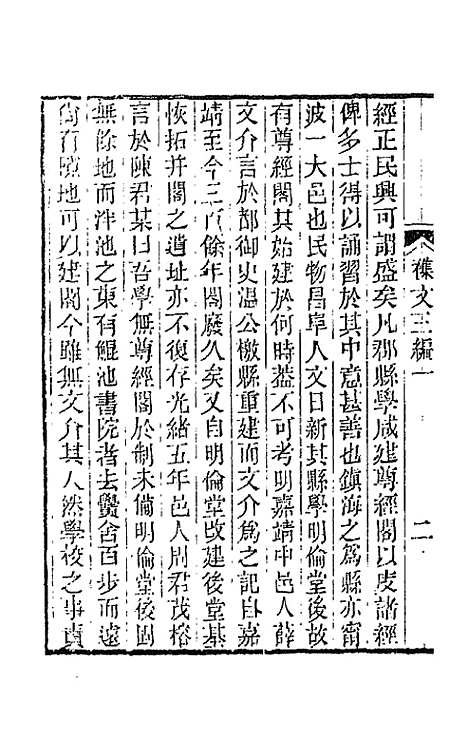 襍文三編一
二
經正民興可謂盛矣凡郡縣學咸建尊經閣以庋諸經
俾多士得以誦習於其中意甚善也鎮海之爲縣亦甯
波一大邑也民物昌阜人文日新其縣學明倫堂後故
有尊經閣其始建於何時葢不可考明嘉靖中邑人薛
文介言於都御史温公檄縣重建而文介爲之記自嘉
靖至今三百餘年閣廢久矣又自明倫堂改建後堂基
恢拓并閣之遺址亦不復存光緒五年邑人周君茂榕
言於陳君某曰吾學無尊經閣於制未備明倫堂後固
無餘地而泮池之東有鯤池書院者去黌舍百步而遠
尚有隙地可以建閣今雖無文介其人然學校之事責